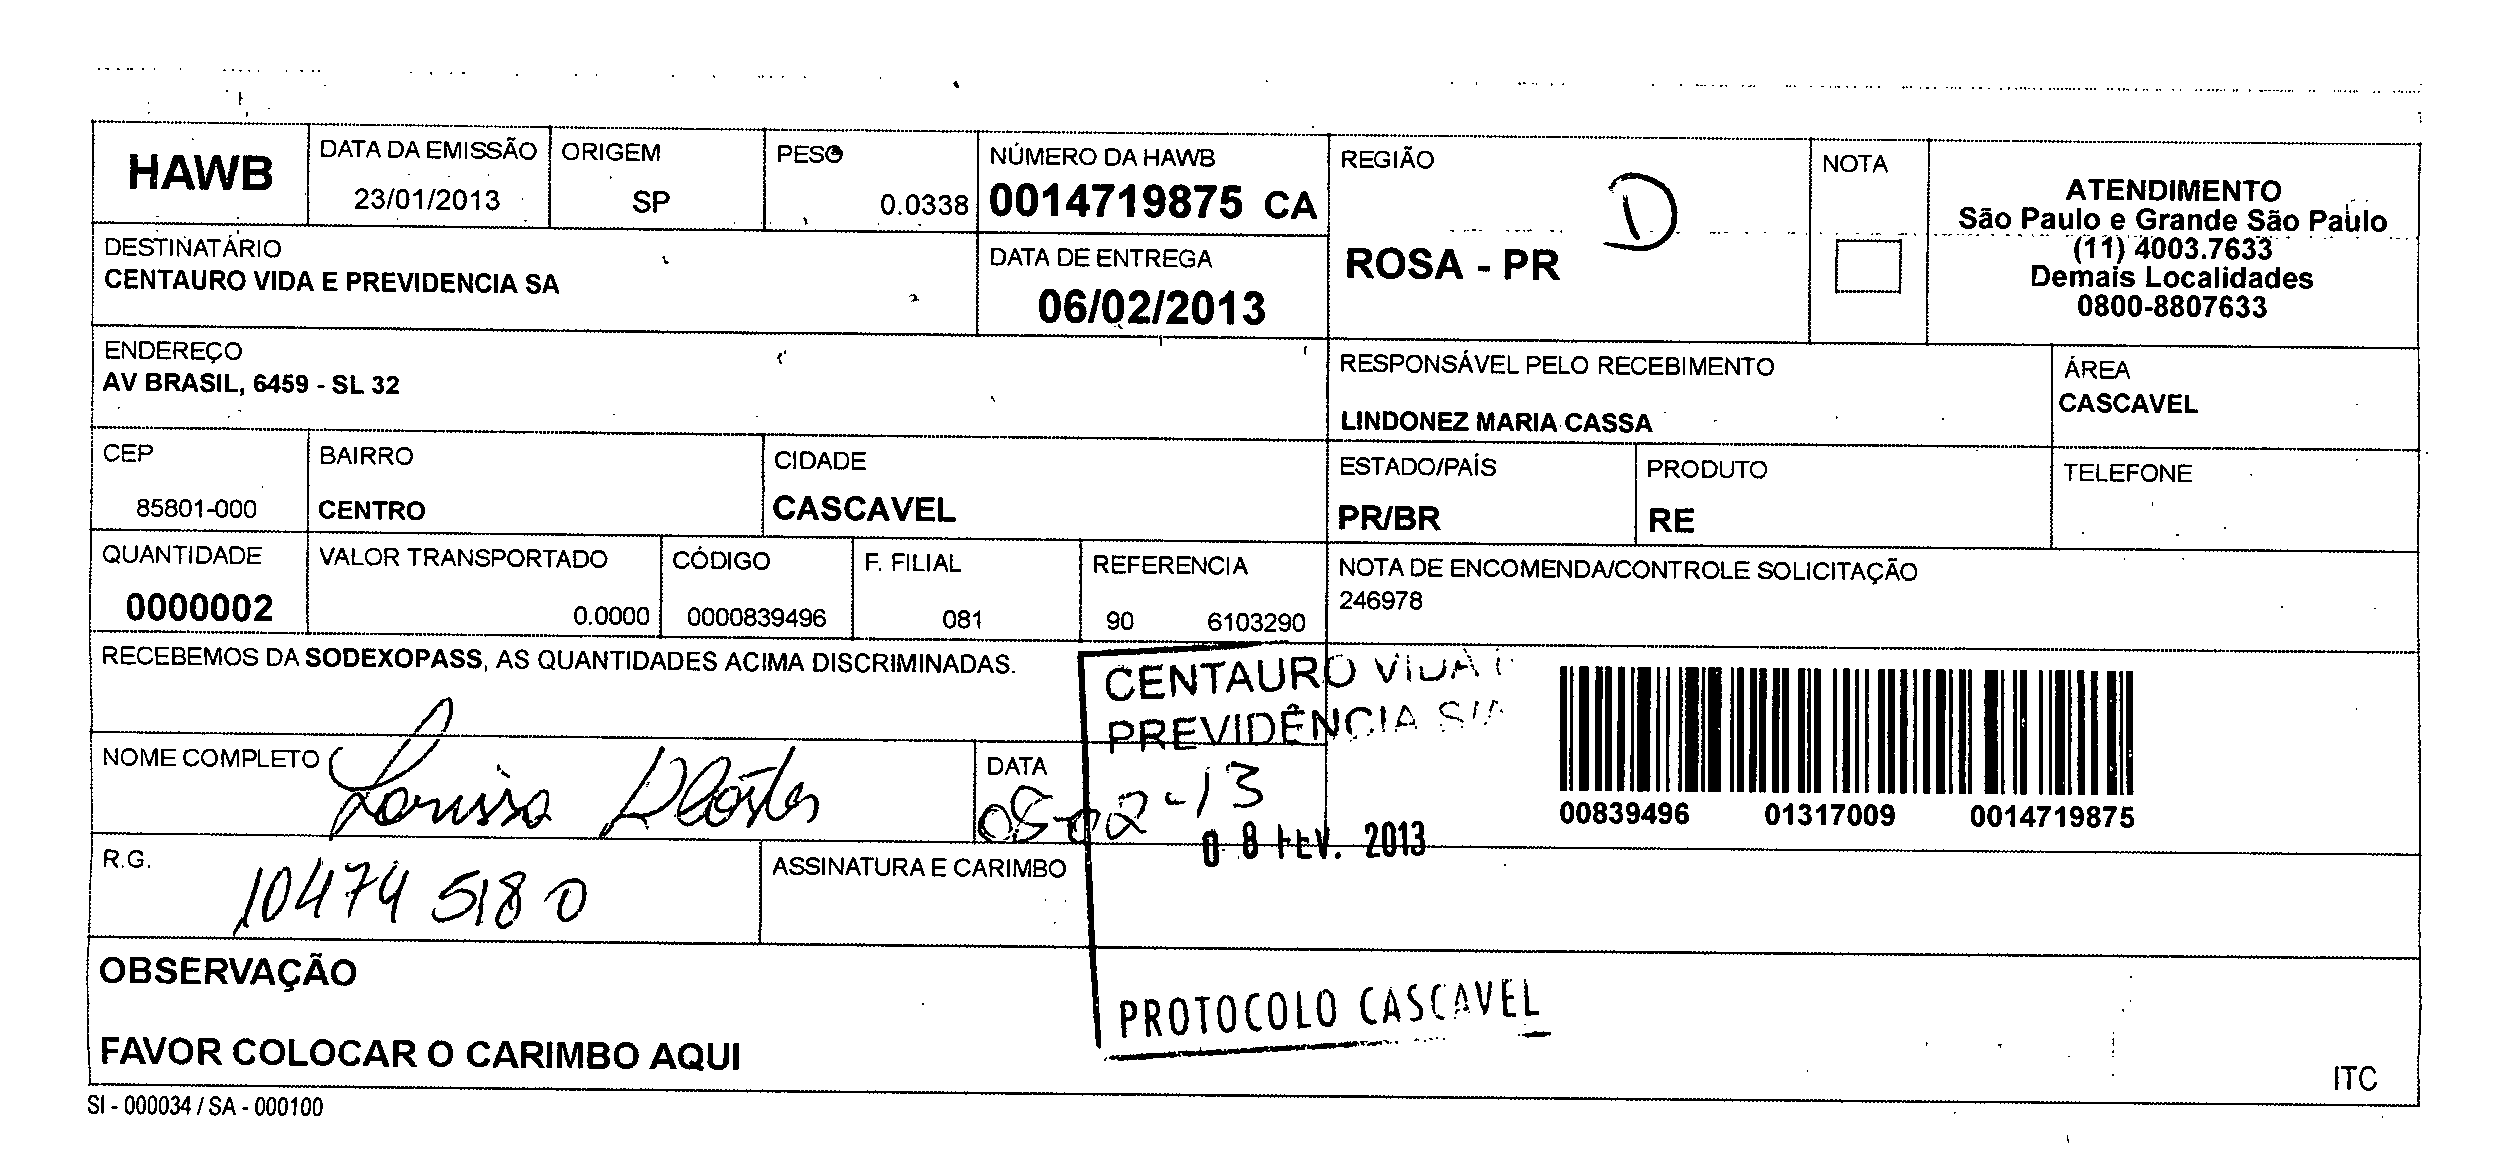 HAWB
DATA DA EMISSÃO
23/01/2013
ORIGEM
SP
PESO
0.0338
NÚMERO DA HAWB
0014719875 CA
REGIÃO
D
ROSA - PR
NOTA
ATENDIMENTO
São Paulo e Grande São Paulo
(11) 4003.7633
Demais Localidades
0800-8807633
DESTINATÁRIO
CENTAURO VIDA E PREVIDENCIA SA
DATA DE ENTREGA
06/02/2013
ENDEREÇO
AV BRASIL, 6459 - SL 32
RESPONSÁVEL PELO RECEBIMENTO
LINDONEZ MARIA CASSA
ÁREA
CASCAVEL
CEP
85801-000
BAIRRO
CENTRO
CIDADE
CASCAVEL
ESTADO/PAÍS
PR/BR
PRODUTO
RE
TELEFONE
QUANTIDADE
0000002
VALOR TRANSPORTADO
0.0000
CÓDIGO
0000839496
F. FILIAL
081
REFERENCIA
90 6103290
NOTA DE ENCOMENDA/CONTROLE SOLICITAÇÃO
246978
RECEBEMOS DA SODEXOPASS, AS QUANTIDADES ACIMA DISCRIMINADAS.
CENTAURO VIDA
PREVIDÊNCIA S/A
00839496 01317009 0014719875
NOME COMPLETO
Larissa
DATA
08-02-13
08 FEV. 2013
R.G.
10474 518 0
ASSINATURA E CARIMBO
OBSERVAÇÃO
FAVOR COLOCAR O CARIMBO AQUI
PROTOCOLO CASCAVEL
ITC
SI - 000034 / SA - 000100